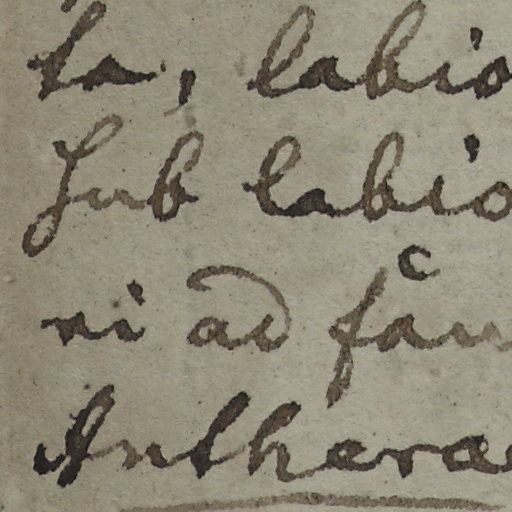 ta, labio
sub labio
ni ad fau
Antherae